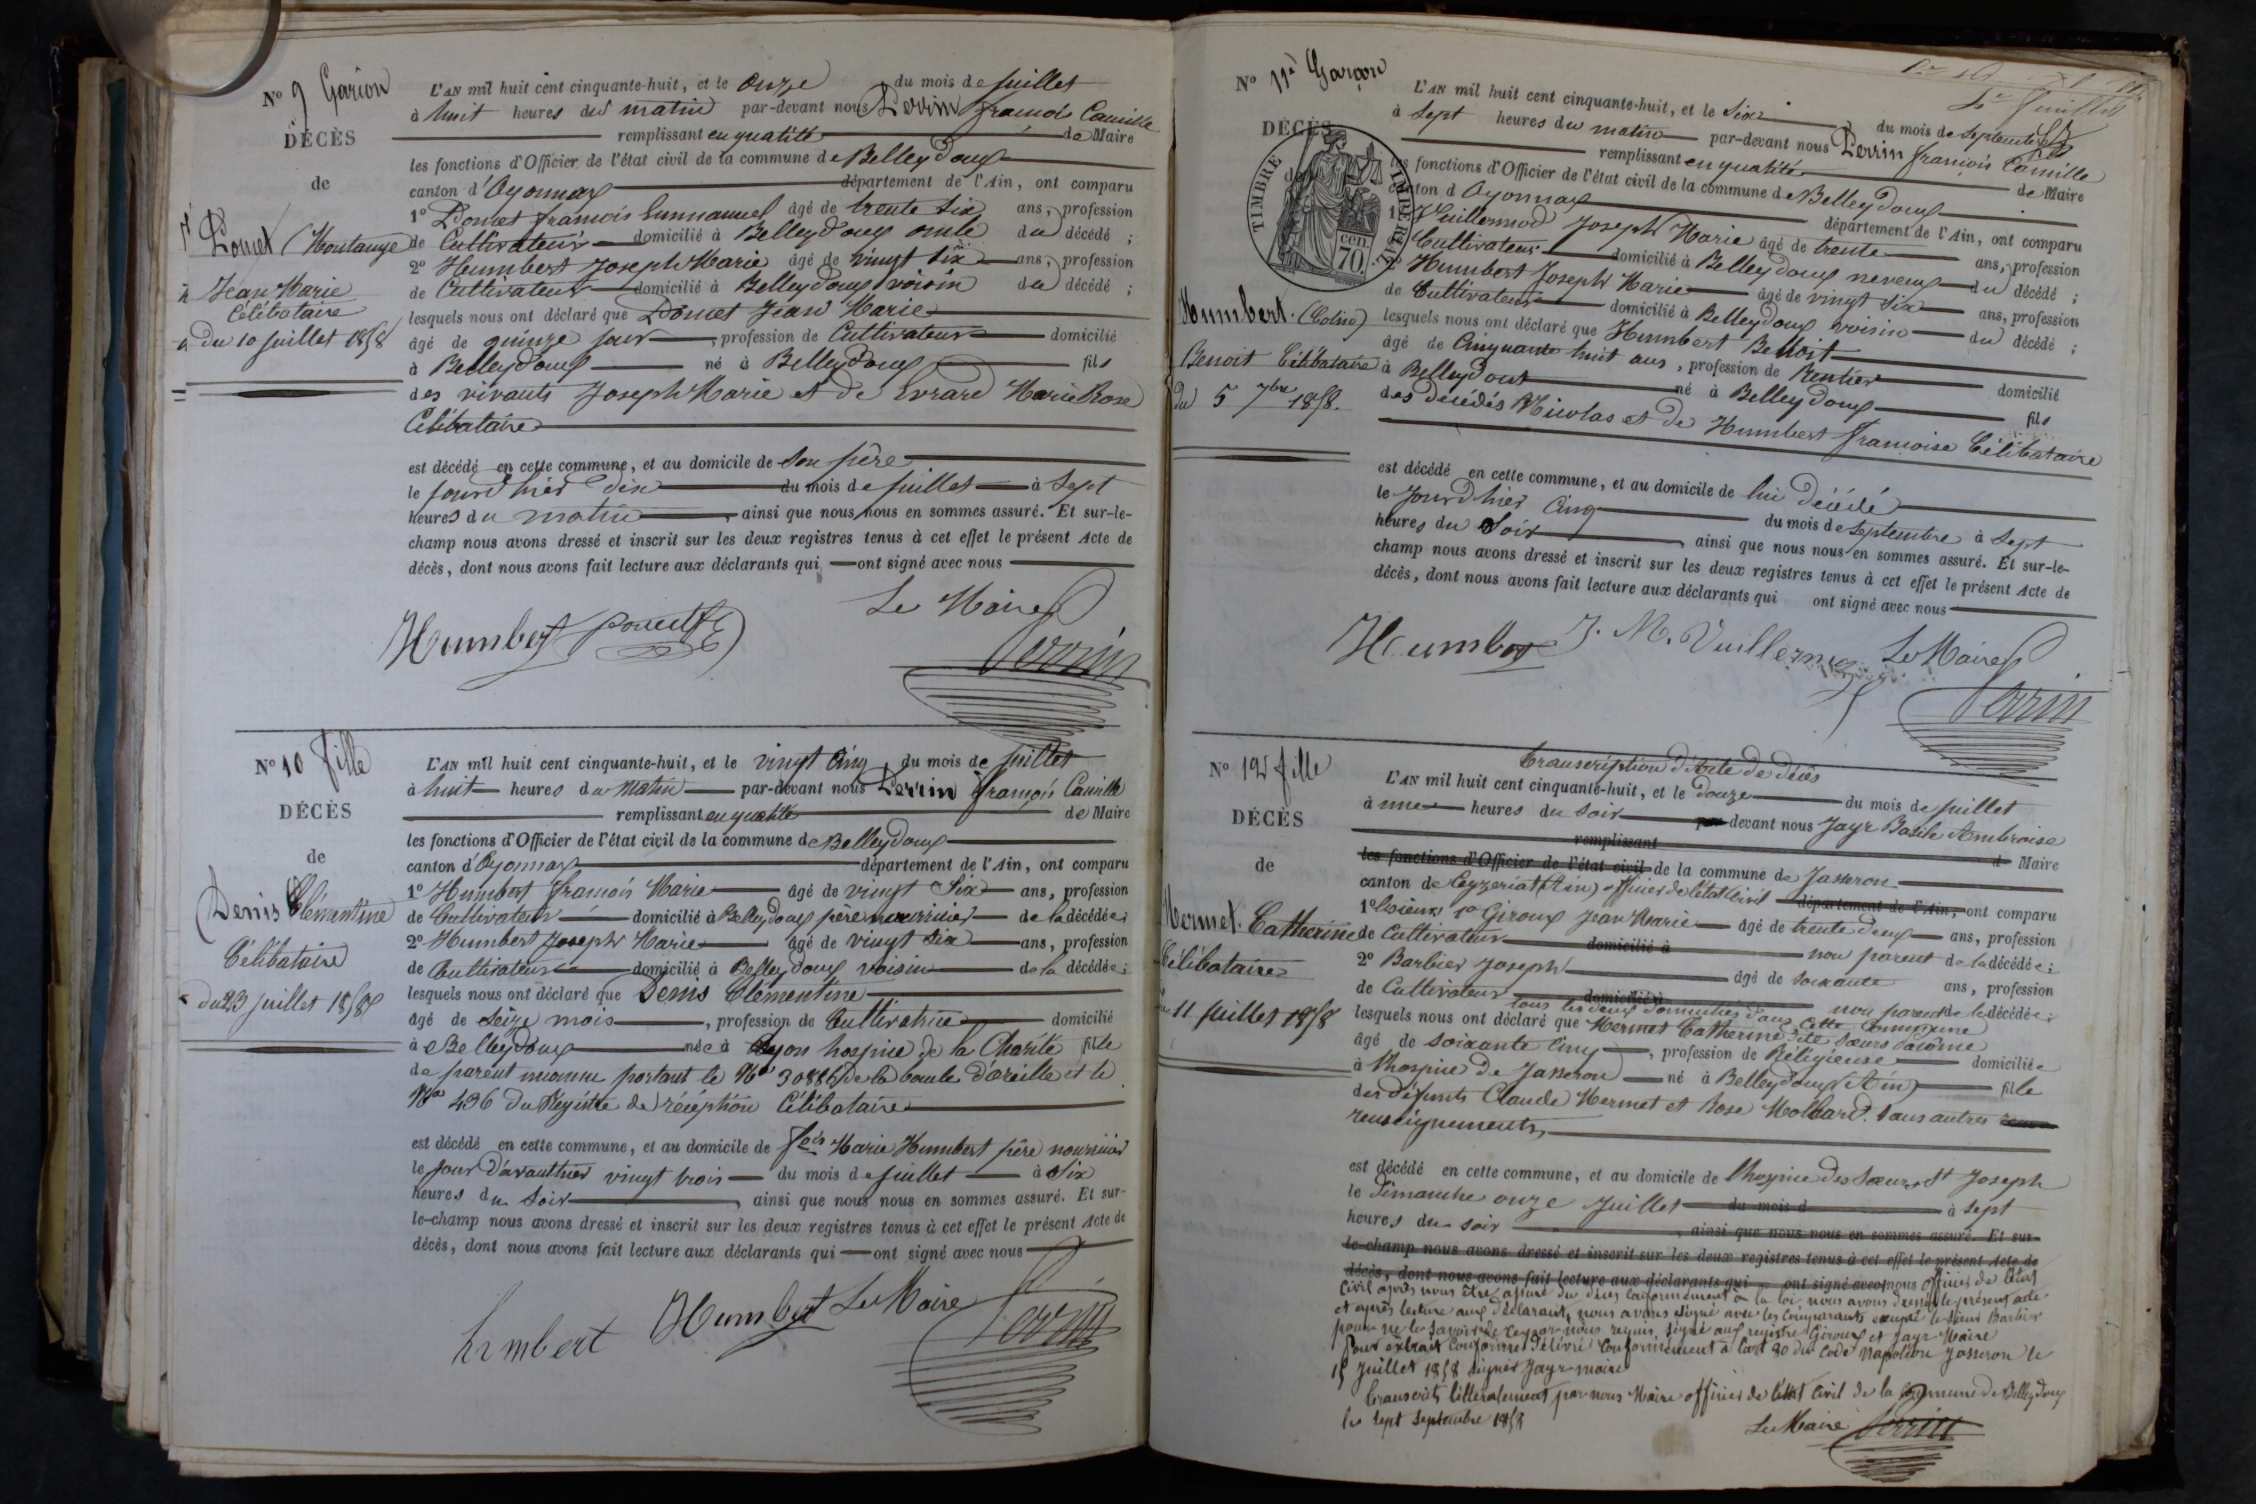 N° 9 Garçon
DÉCÈS
de
Pomet (Moutange
Jean Marie
Célibataire
du 10 juillet 1858
L'AN mil huit cent cinquante-huit, et le onze du mois de juillet
à huit heures du matin par-devant nous Perrin françois Camille
remplissant en qualité de Maire
les fonctions d'Officier de l'état civil de la commune de Belleydoux
canton d'Oyonnax département de l'Ain, ont comparu
1° Pomet francois Emmanuel âgé de trente six ans, profession
de Cultivateur domicilié à Belleydoux oncle du décédé ;
2° Humbert Joseph Marie âgé de vingt six ans, profession
de Cultivateur domicilié à Belleydoux voisin du décédé ;
lesquels nous ont déclaré que Pomet Jean Marie
âgé de quinze jour, profession de Cultivateur domicilié
à Belleydoux né à Belleydoux fils
des vivants Joseph Marie et de Evrard Marie Rose
Célibataire
est décédé en cette commune, et au domicile de son père
le jourd'hier dix du mois de juillet à sept
heures du matin, ainsi que nous nous en sommes assuré. Et sur-le-
champ nous avons dressé et inscrit sur les deux registres tenus à cet effet le présent Acte de
décès, dont nous avons fait lecture aux déclarants qui ont signé avec nous
Humbert Pomet fE Le Maire
Perrin
N° 10 fille
DÉCÈS
de
Denis Clémentine
Célibataire
du 23 juillet 1858
L'AN mil huit cent cinquante-huit, et le vingt cinq du mois de juillet
à huit heures du matin par-devant nous Perrin françois Camille
remplissant en qualité de Maire
les fonctions d'Officier de l'état civil de la commune de Belleydoux
canton d'Oyonnax département de l'Ain, ont comparu
1° Humbert françois Marie âgé de vingt six ans, profession
de Cultivateur domicilié à Belleydoux père nourricier de la décédée ;
2° Humbert Joseph Marie âgé de vingt six ans, profession
de Cultivateur domicilié à Belleydoux voisin de la décédée ;
lesquels nous ont déclaré que Denis Clémentine
âgé de seize mois, profession de Cultivatrice domicilié
à Belleydoux née à Lyon hospice de la Charité fille
de parent inconnu portant le N° 30886 de la boucle d'oreille et le
N° 436 du Registre de réception Célibataire
est décédé en cette commune, et au domicile de fois Marie Humbert père nourricier
le jour d'avanthier vingt trois du mois de juillet à six
heures du soir, ainsi que nous nous en sommes assuré. Et sur-
le-champ nous avons dressé et inscrit sur les deux registres tenus à cet effet le présent Acte de
décès, dont nous avons fait lecture aux déclarants qui ont signé avec nous
humbert Humbert Le Maire
Perrin
N° 11 Garçon
DÉCÈS
de
TIMBRE IMPERIAL
70 cen.
Humbert (Colin)
Benoit Célibataire
du 5 7bre 1858.
L'AN mil huit cent cinquante-huit, et le six du mois de septembre
à sept heures du matin par-devant nous Perrin francois Camille
remplissant en qualité de Maire
les fonctions d'Officier de l'état civil de la commune de Belleydoux
canton d'Oyonnax département de l'Ain, ont comparu
1° Vuillermod Joseph Marie âgé de trente ans, profession
Cultivateur domicilié à Belleydoux neveux du décédé ;
Humbert Joseph Marie âgé de vingt six ans, profession
de Cultivateur domicilié à Belleydoux voisin du décédé ;
lesquels nous ont déclaré que Humbert Benoit
âgé de Cinquante huit ans, profession de Rentier domicilié
à Belleydoux né à Belleydoux fils
des décédés Nicolas et de Humbert françoise Célibataire
est décédé en cette commune, et au domicile de lui décédé
le jourd'hier cinq du mois de septembre à sept
heures du soir, ainsi que nous nous en sommes assuré. Et sur-le-
champ nous avons dressé et inscrit sur les deux registres tenus à cet effet le présent Acte de
décès, dont nous avons fait lecture aux déclarants qui ont signé avec nous
Humbert J. M. Vuillermoz Le Maire
Perrin
N° 12 fille
DÉCÈS
de
Mermet Catherine
Célibataire
11 juillet 1858
Transcription d'Acte de décès
L'AN mil huit cent cinquante-huit, et le douze du mois de juillet
à une heures du soir par devant nous Jayr Basile Ambroise
remplissant d Maire
les fonctions d'Officier de l'état civil de la commune de Jasseron
canton de Ceyzeriat (Ain) officier de l'état civil département de l'Ain, ont comparu
1° les sieurs 1° Giroux Jean Marie âgé de trente deux ans, profession
de Cultivateur domicilié à non parent de la décédée ;
2° Barbier Joseph âgé de soixante ans, profession
de Cultivateur domicilié à non parent de la décédée ;
tous les deux domiciliés dans cette Commune
lesquels nous ont déclaré que Mermet Catherine dite sœur
âgé de soixante cinq, profession de Réligieuse domiciliée
à l'hospice de Jasseron né à Belleydoux (Ain) fille
des défunts Claude Mermet et Rose Molbard. Sans autres
renseignements,
est décédé en cette commune, et au domicile de l'hospice des Sœurs St Joseph
le Dimanche onze juillet du mois d à sept
heures du soir, ainsi que nous nous en sommes assuré. Et sur-
le-champ nous avons dressé et inscrit sur les deux registres tenus à cet effet le présent Acte de
décès, dont nous avons fait lecture aux déclarants qui ont signé avec nous officier de l'état
Civil après nous être assuré du décès conformément à la loi, nous avons dressé le présent acte
et après lecture aux déclarants, nous avons signé avec les comparants excepté le sieur Barbier
pour ne le savoir de ce par nous requis. Signé aux registre Giroux et Jayr Maire
Pour extrait conforme délivré conformément à l'art 80 du Code Napoléon Jasseron le
15 juillet 1858 signés Jayr maire
Transcrit littéralement par nous Maire officier de l'état Civil de la Commune de Belleydoux
le sept septembre 1858
Le Maire Perrin